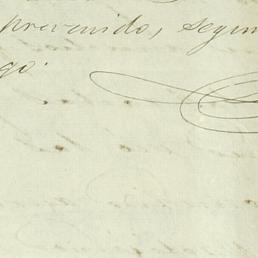 prevenido, segun
go.